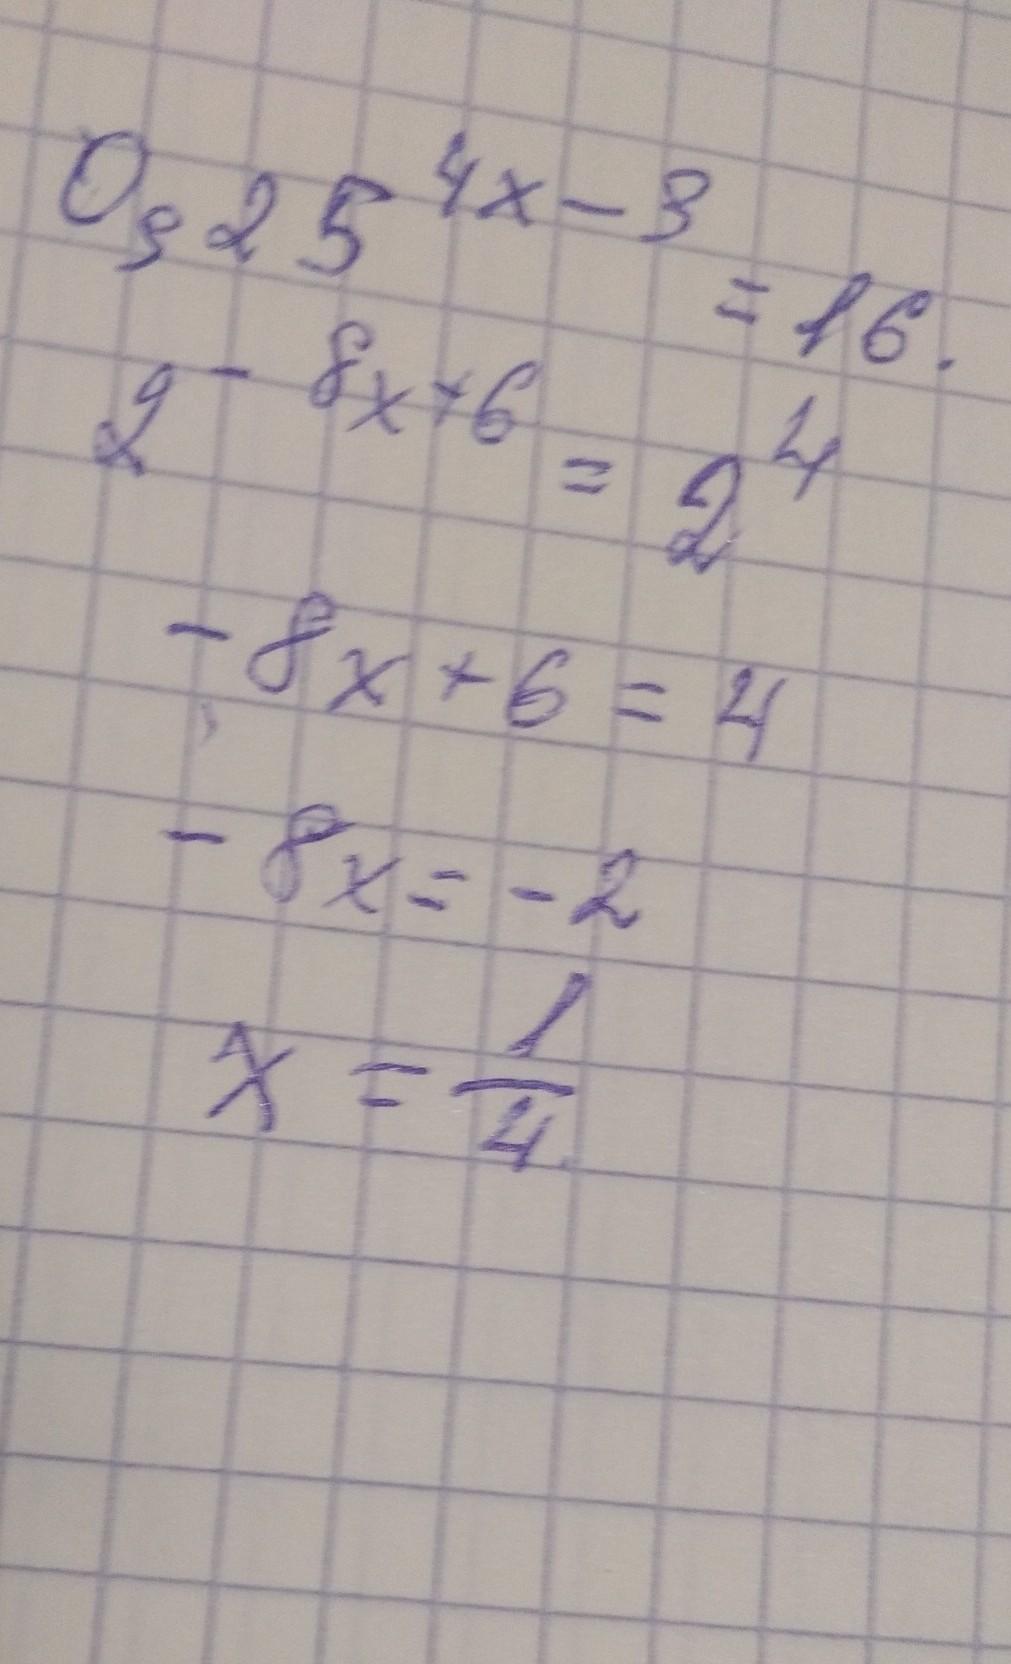 0,25^{4x-3} = 16.
2^{-8x+6} = 2^4
-8x+6=4
-8x=-2
x = \frac{1}{4}.